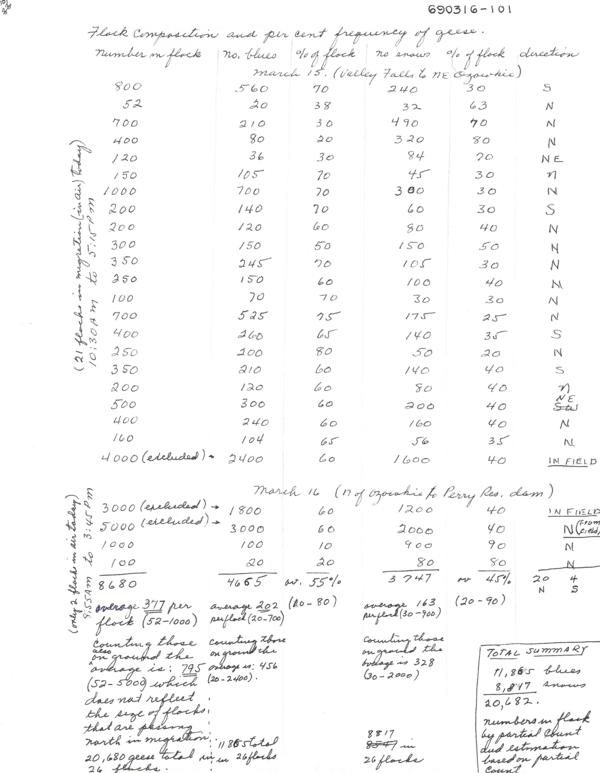 690316-101
Flock Composition and per cent frequency of geese.
number in flock no. blues % of flock no snows % of flock direction
March 15. (Valley Falls to NE Ozawkie)
800 560 70 240 30 S
52 20 38 32 63 N
700 210 30 490 70 N
400 80 20 320 80 N
120 36 30 84 70 NE
150 105 70 45 30 N
1000 700 70 300 30 N
200 140 70 60 30 S
200 120 60 80 40 N
300 150 50 150 50 N
350 245 70 105 30 N
250 150 60 100 40 N
100 70 70 30 30 N
700 525 75 175 25 N
400 260 65 140 35 S
250 200 80 50 20 N
350 210 60 140 40 S
200 120 60 80 40 N
500 300 60 200 40 NE
400 240 60 160 40 N
160 104 65 56 35 N
4000 (excluded) → 2400 60 1600 40 IN FIELD
(21 flocks in migration (in air) today)
10:30 AM to 5:15 PM
March 16 (N of Ozawkie to Perry Res. dam)
3000 (excluded) → 1800 60 1200 40 IN FIELD
5000 (excluded) → 3000 60 2000 40 N (from field)
1000 100 10 900 90 N
100 20 20 80 80 N
8680 4665 av. 55% 3747 av 45% 20 N 4 S
(only 2 flocks in air today)
9:55 AM to 3:45 PM
average 377 per flock (52-1000)
average 202 per flock (20-700)
(20-80)
average 163 per flock (30-900)
(20-90)
counting those
on ground the
average is: 795
(52-5000) which
does not reflect
the size of flocks
that are passing
north in migration
20,680 geese total in
26 flocks.
counting those
on ground the
average is: 456
(20-2400).
11865 total
in 26 flocks
counting those
on ground the
average is 328
(30-2000)
8817
in
26 flocks
TOTAL SUMMARY
11,865 blues
8,817 snows
20,682.
numbers in flock
by partial count
and estimation
based on partial
count